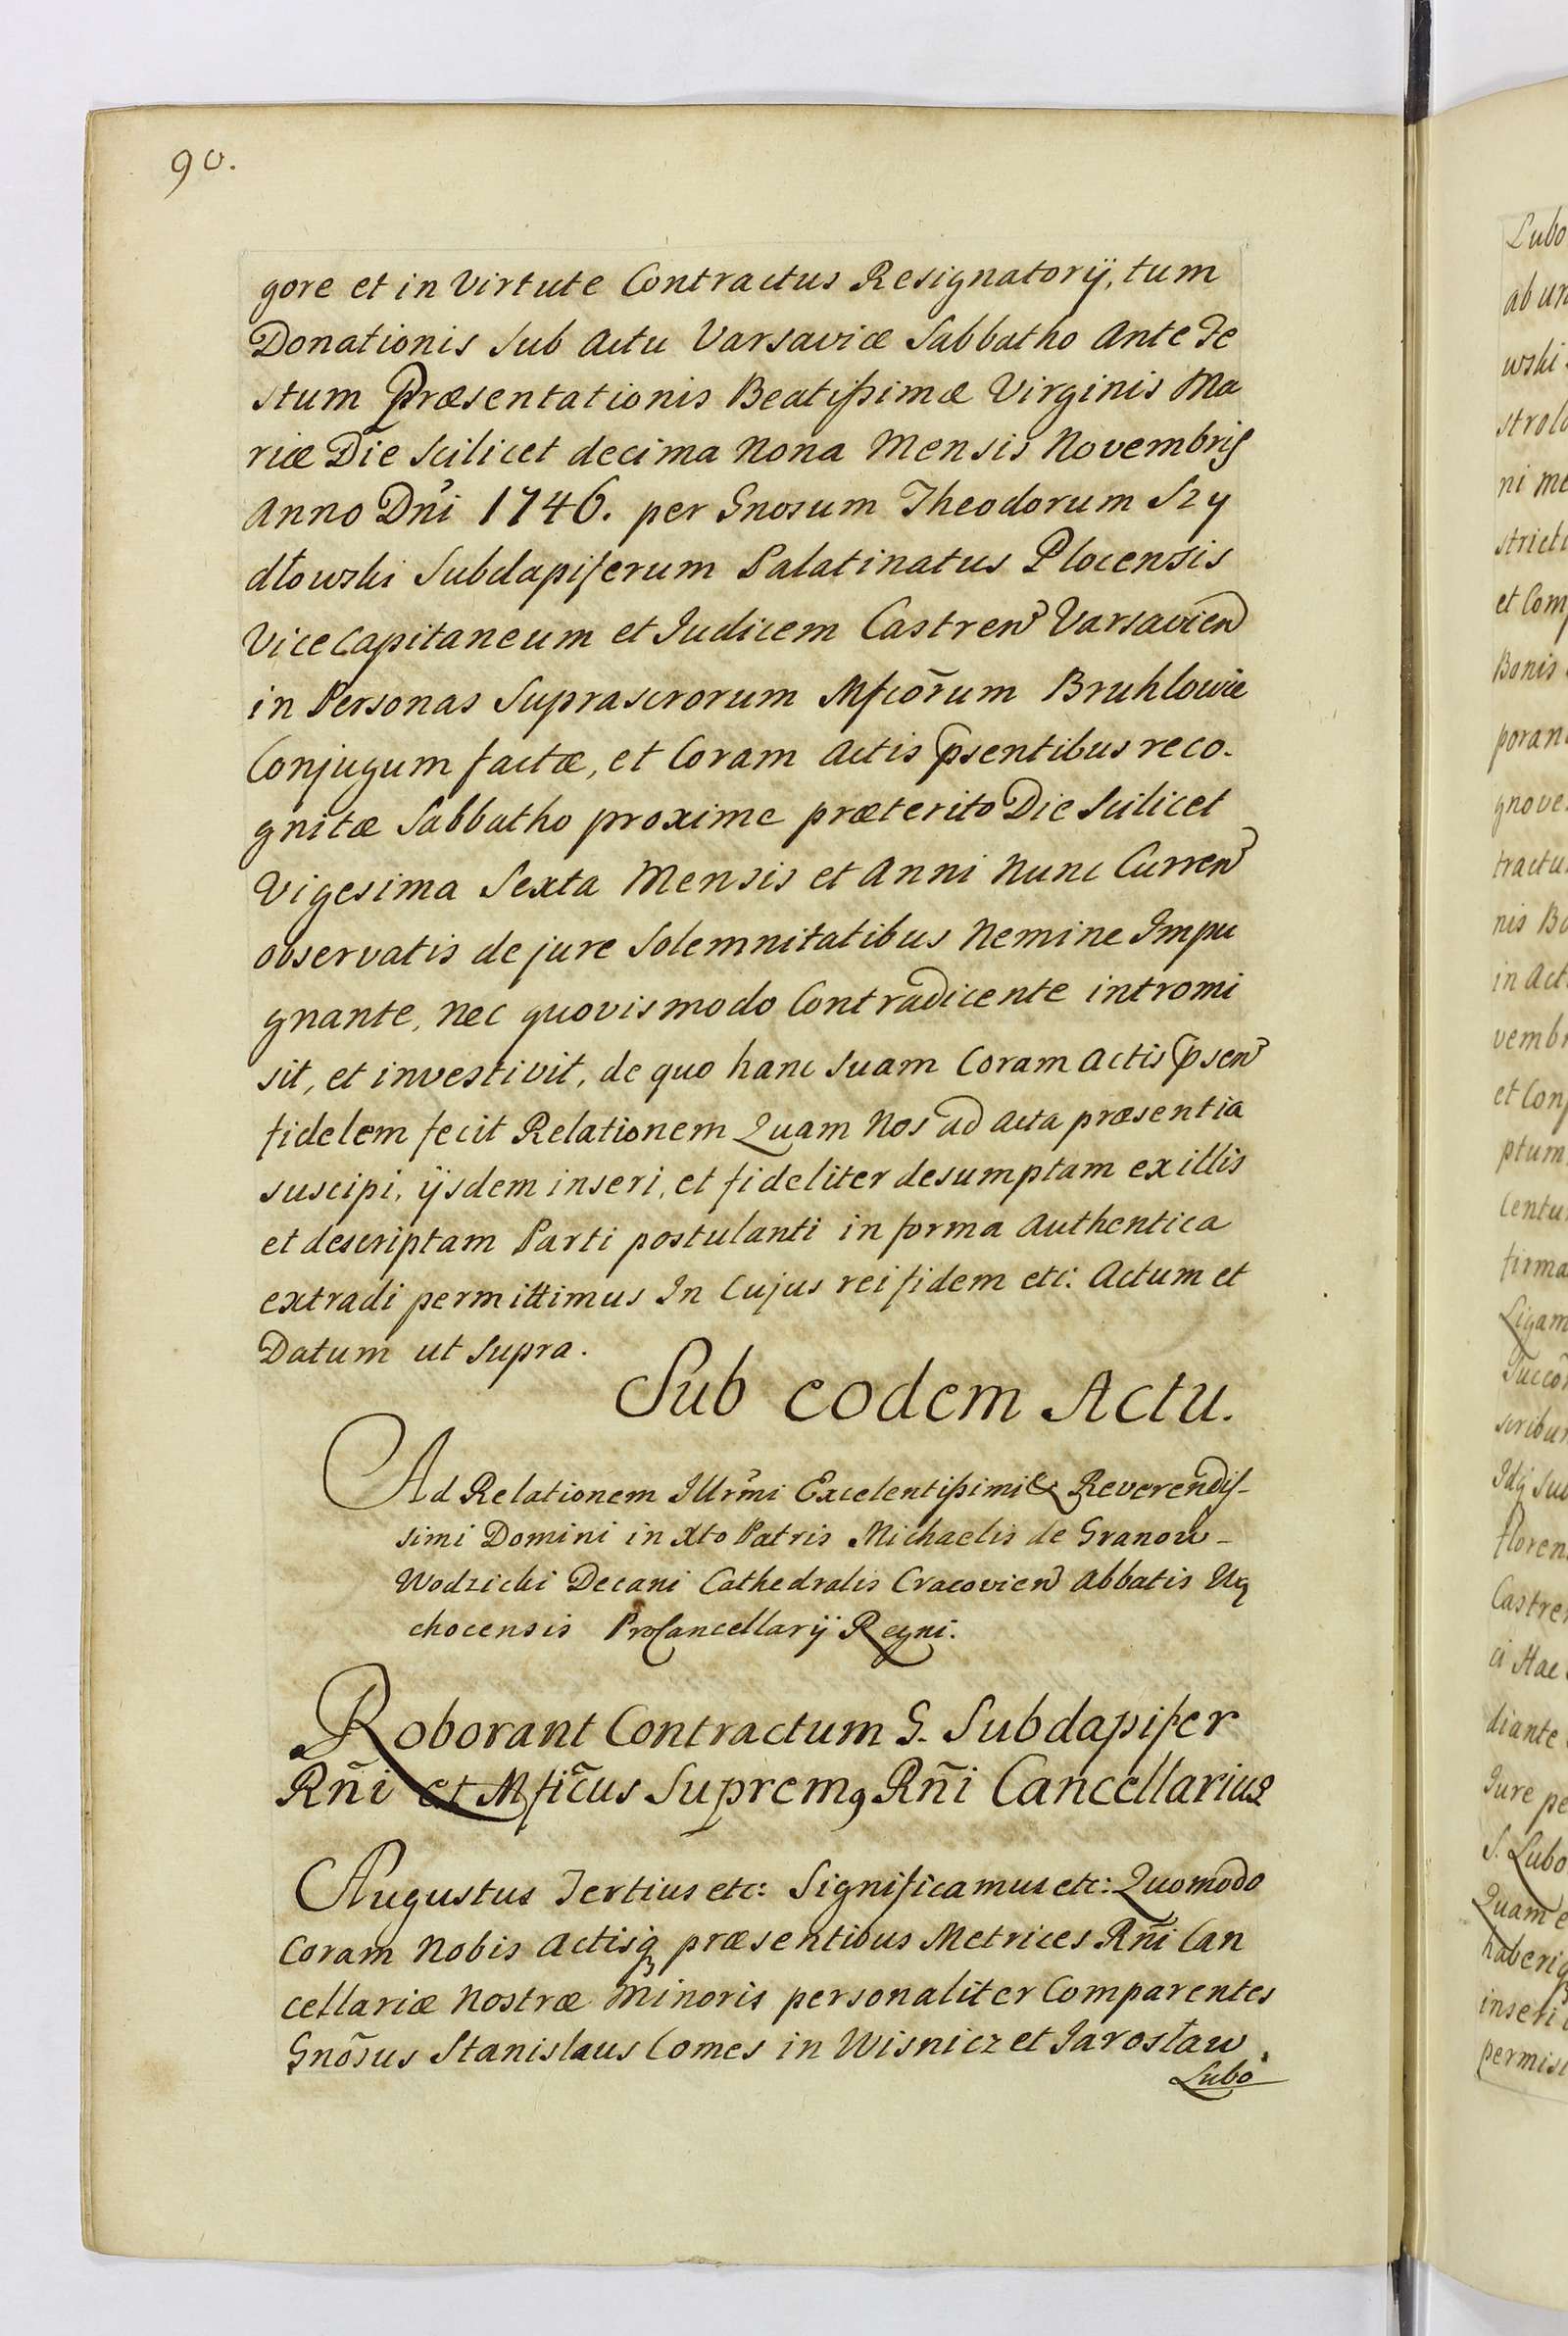 90.
gore et in Virtute Contractus Resignatorÿ, tum
Donationis Sub Actu Varsaviæ Sabbatho Ante Fe
stum Præsentationis Beatissimæ Virginis Ma
riæ Die Scilicet decima Nona Mensis Novembris
Anno Dni 1746. per Gnosum Theodorum Szy
dłowski Subdapiferum Palatinatus Plocensis
Vice Capitaneum et Judicem Castren Varsavien
in Personas Suprascrorum Mfcõrum Bruhlowie
Conjugum factæ, et Coram Actis psentibus reco-
gnitæ Sabbatho proxime præterito Die Scilicet
Vigesima Sexta Mensis et Anni Nunc Curren
observatis de jure Solemnitatibus Nemine Impu
gnante, nec quovis modo Contradicente intromi
sit, et investivit, de quo hanc suam Coram Actis psen
fidelem fecit Relationem Quam Nos ad Acta præsentia
suscipi, ÿsdem inseri, et fideliter desumptam ex illis
et descriptam Parti postulanti in forma Authentica
extradi permittimus In Cujus rei fidem etc: Actum et
Datum ut Supra.
Sub eodem Actu.
Ad Relationem Illrmi Excelentissimi & Reverendis-
simi Domini in Xto Patris Michaelis de Granow-
Wodzicki Decani Cathedralis Cracovien Abbatis
chocensis ProCancellarÿ Regni.
Roborant Contractum G. Subdapifer
Rñi et Mficus Supremꝯ Rñi Cancellarius
Augustus Tertius etc: Significamus etc: Quomodo
Coram Nobis Actisq̨ præsentibus Metrices Rñi Can
cellariæ Nostræ Minoris personaliter Comparentes
Gnõsus Stanislaus Comes in Wisnicz et Jarosław
Lubo
Lubo
ab
wski
ni
et Com
Bonis
poran
gnove
tractu
nis
in Act
vemb
et Con
ptum
centu
firma
Ligam
scribu
floren
Castre
diante
Jure pe
S. Lubo
Quam e
haberi
inseri
permis